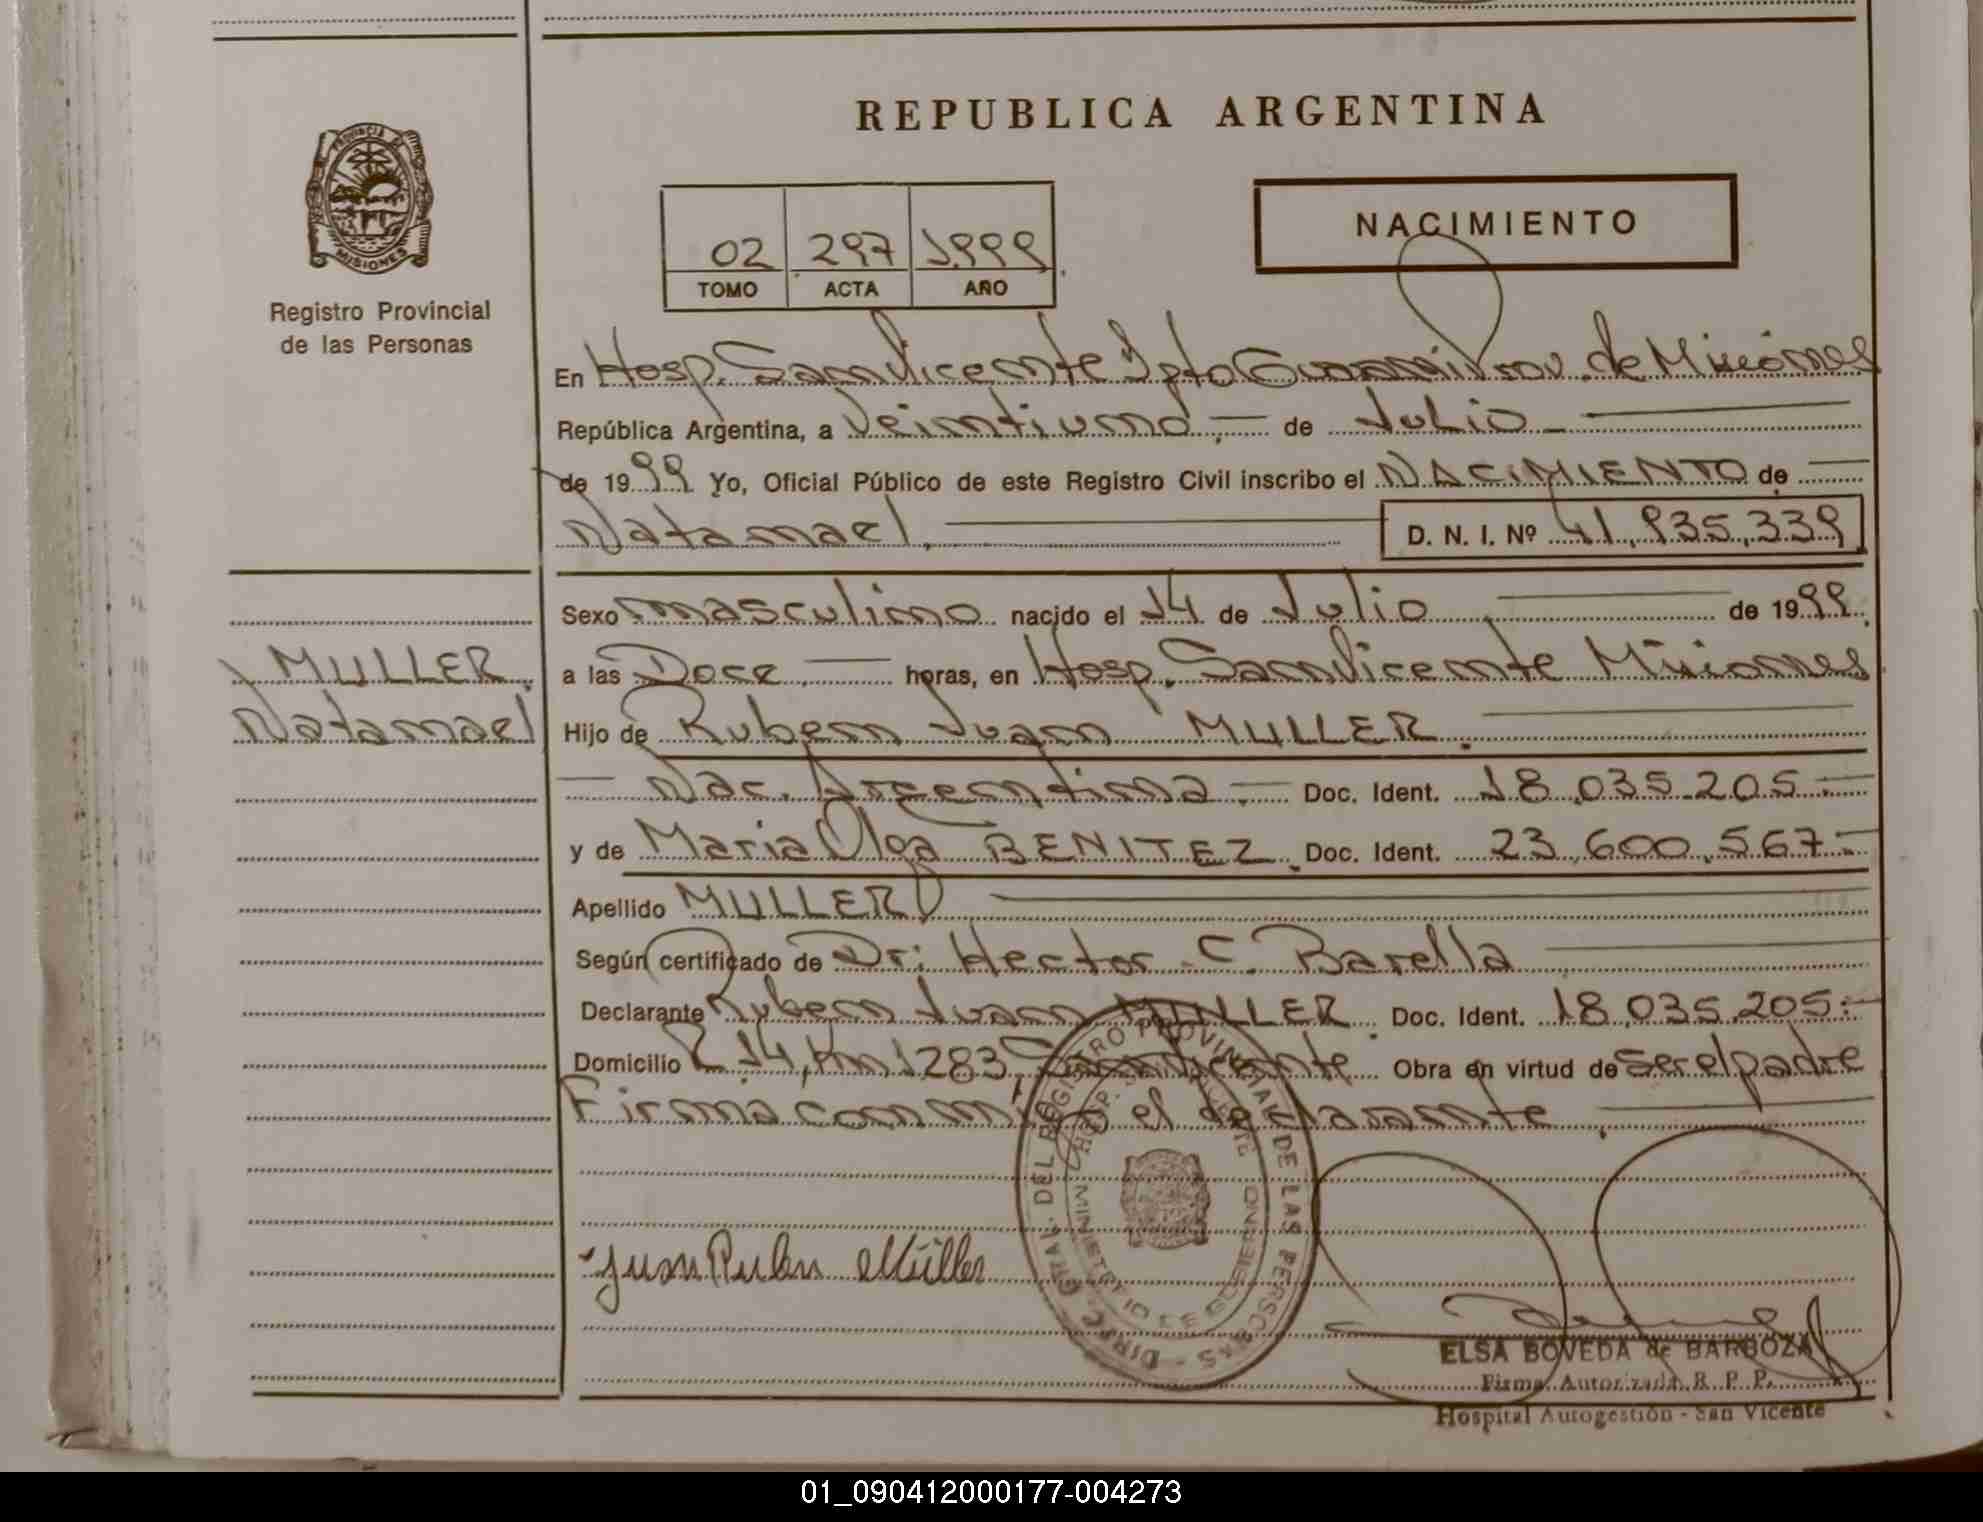 REPUBLICA ARGENTINA
PROVINCIA DE
MISIONES
Registro Provincial
de las Personas
02 297 1.999
TOMO ACTA AÑO
NACIMIENTO
En Hosp. San Vicente Dpto Guarani Prov. de Misiones
República Argentina, a Veintiuno de Julio
de 1999 Yo, Oficial Público de este Registro Civil inscribo el NACIMIENTO de
Natanael. D. N. I. Nº 41.935.339
Sexo masculino nacido el 14 de Julio de 1999.
MULLER
Natanael
a las Doce horas, en Hosp. San Vicente Misiones
Hijo de Ruben Juan MULLER.
Nac. Argentina - Doc. Ident. 18.035.205.-
y de Maria Olga BENITEZ. Doc. Ident. 23.600.567.-
Apellido MULLER
Según certificado de Dr: Hector C. Barella
Declarante Ruben Juan MULLER. Doc. Ident. 18.035.205.-
Domicilio R 14, Km 1283, San Vicente Obra en virtud de ser el padre
Firma conmigo el declarante.
DIREC. GRAL. DEL REGISTRO PROVINCIAL DE LAS PERSONAS
HOSP. S. VICENTE
MINISTERIO DE GOBIERNO
Juan Ruben Müller
ELSA BOVEDA de BARBOZA
Firma Autorizada R. P. P.
Hospital Autogestión - San Vicente
01_090412000177-004273